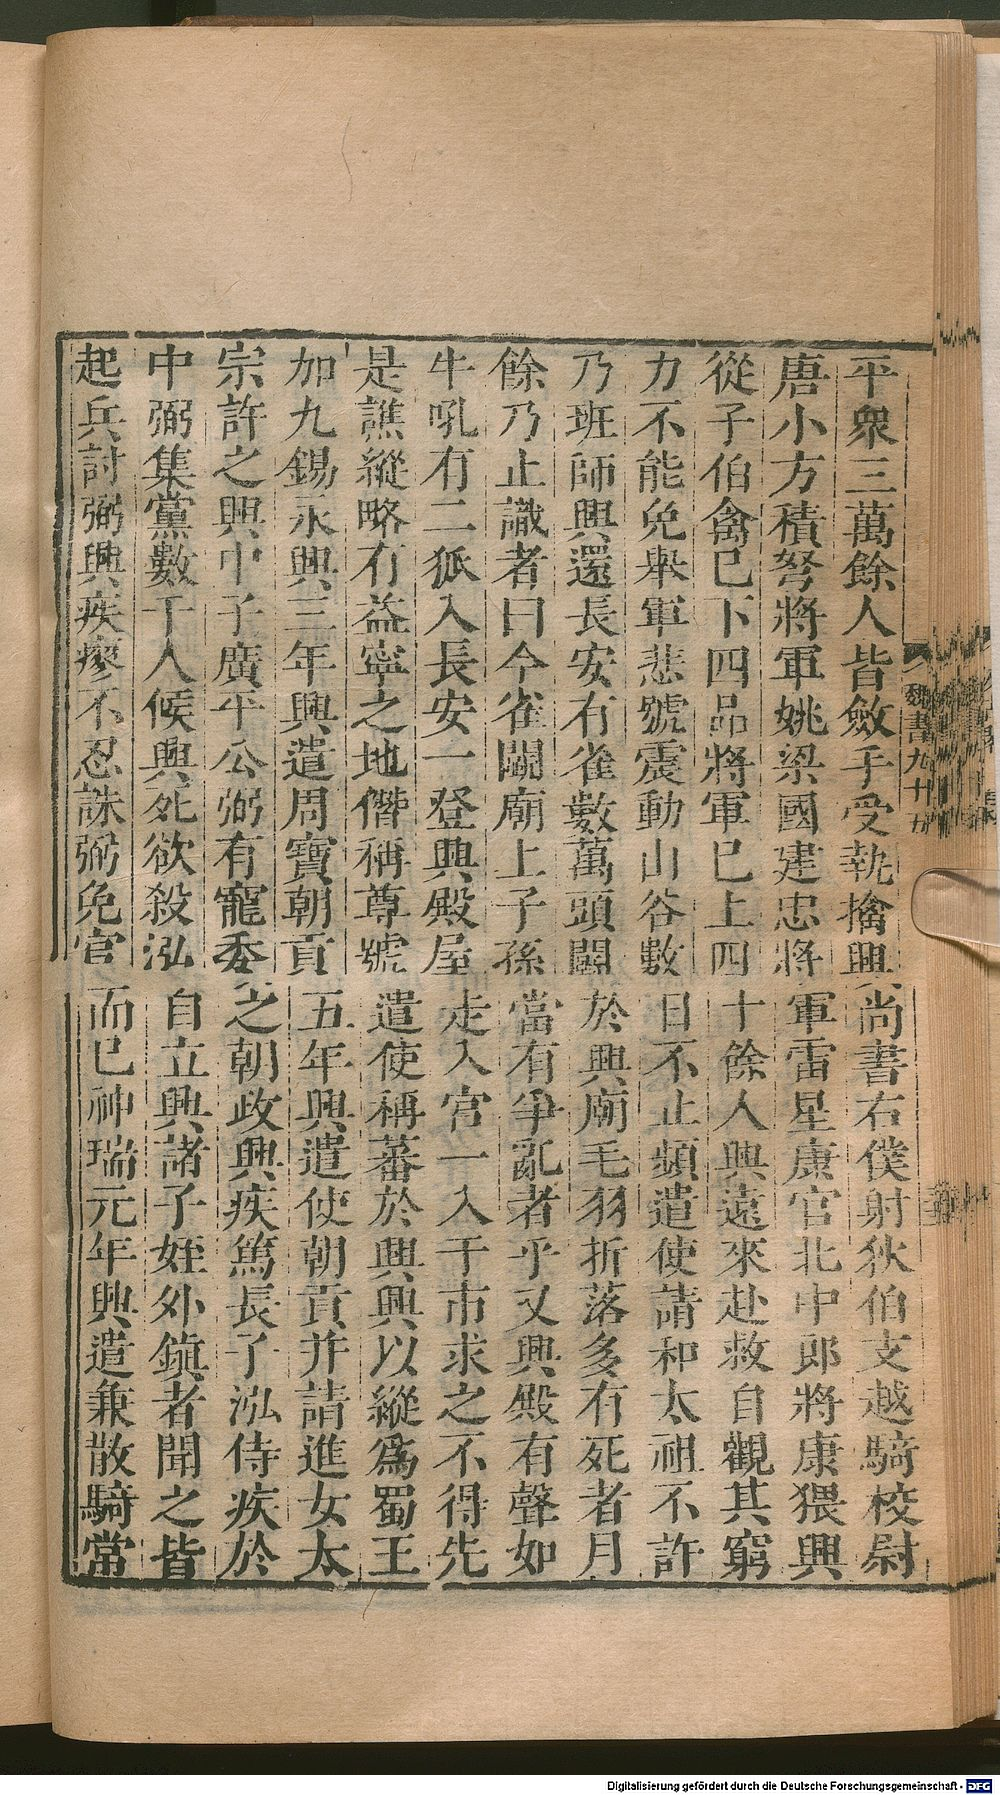 平衆三萬餘人皆斂手受執擒興尚書右僕射狄伯支越騎校尉
唐小方積弩將軍姚梁國建忠將軍雷星康官北中郎將康猥興
從子伯禽已下四品將軍已上四十餘人興遠來赴救自觀其窮
力不能免舉軍悲號震動山谷數日不止頻遣使請和太祖不許
乃班師興還長安有雀數萬頭鬭於興廟毛羽折落多有死者月
餘乃止識者曰今雀鬭廟上子孫當有爭亂者乎又興殿有聲如
牛吼有二狐入長安一登興殿屋走入宮一入于市求之不得先
是譙縱略有益寧之地僭稱尊號遣使稱蕃於興興以縱爲蜀王
加九錫永興三年興遣周寶朝貢五年興遣使朝貢并請進女太
宗許之興中子廣平公弼有寵委之朝政興疾篤長子泓侍疾於
中弼集黨數千人候興死欲殺泓自立興諸子姪外鎭者聞之皆
起兵討弼興疾瘳不忍誅弼免官而已神瑞元年興遣兼散騎常
魏書九十五
Digitalisierung gefördert durch die Deutsche Forschungsgemeinschaft - DFG